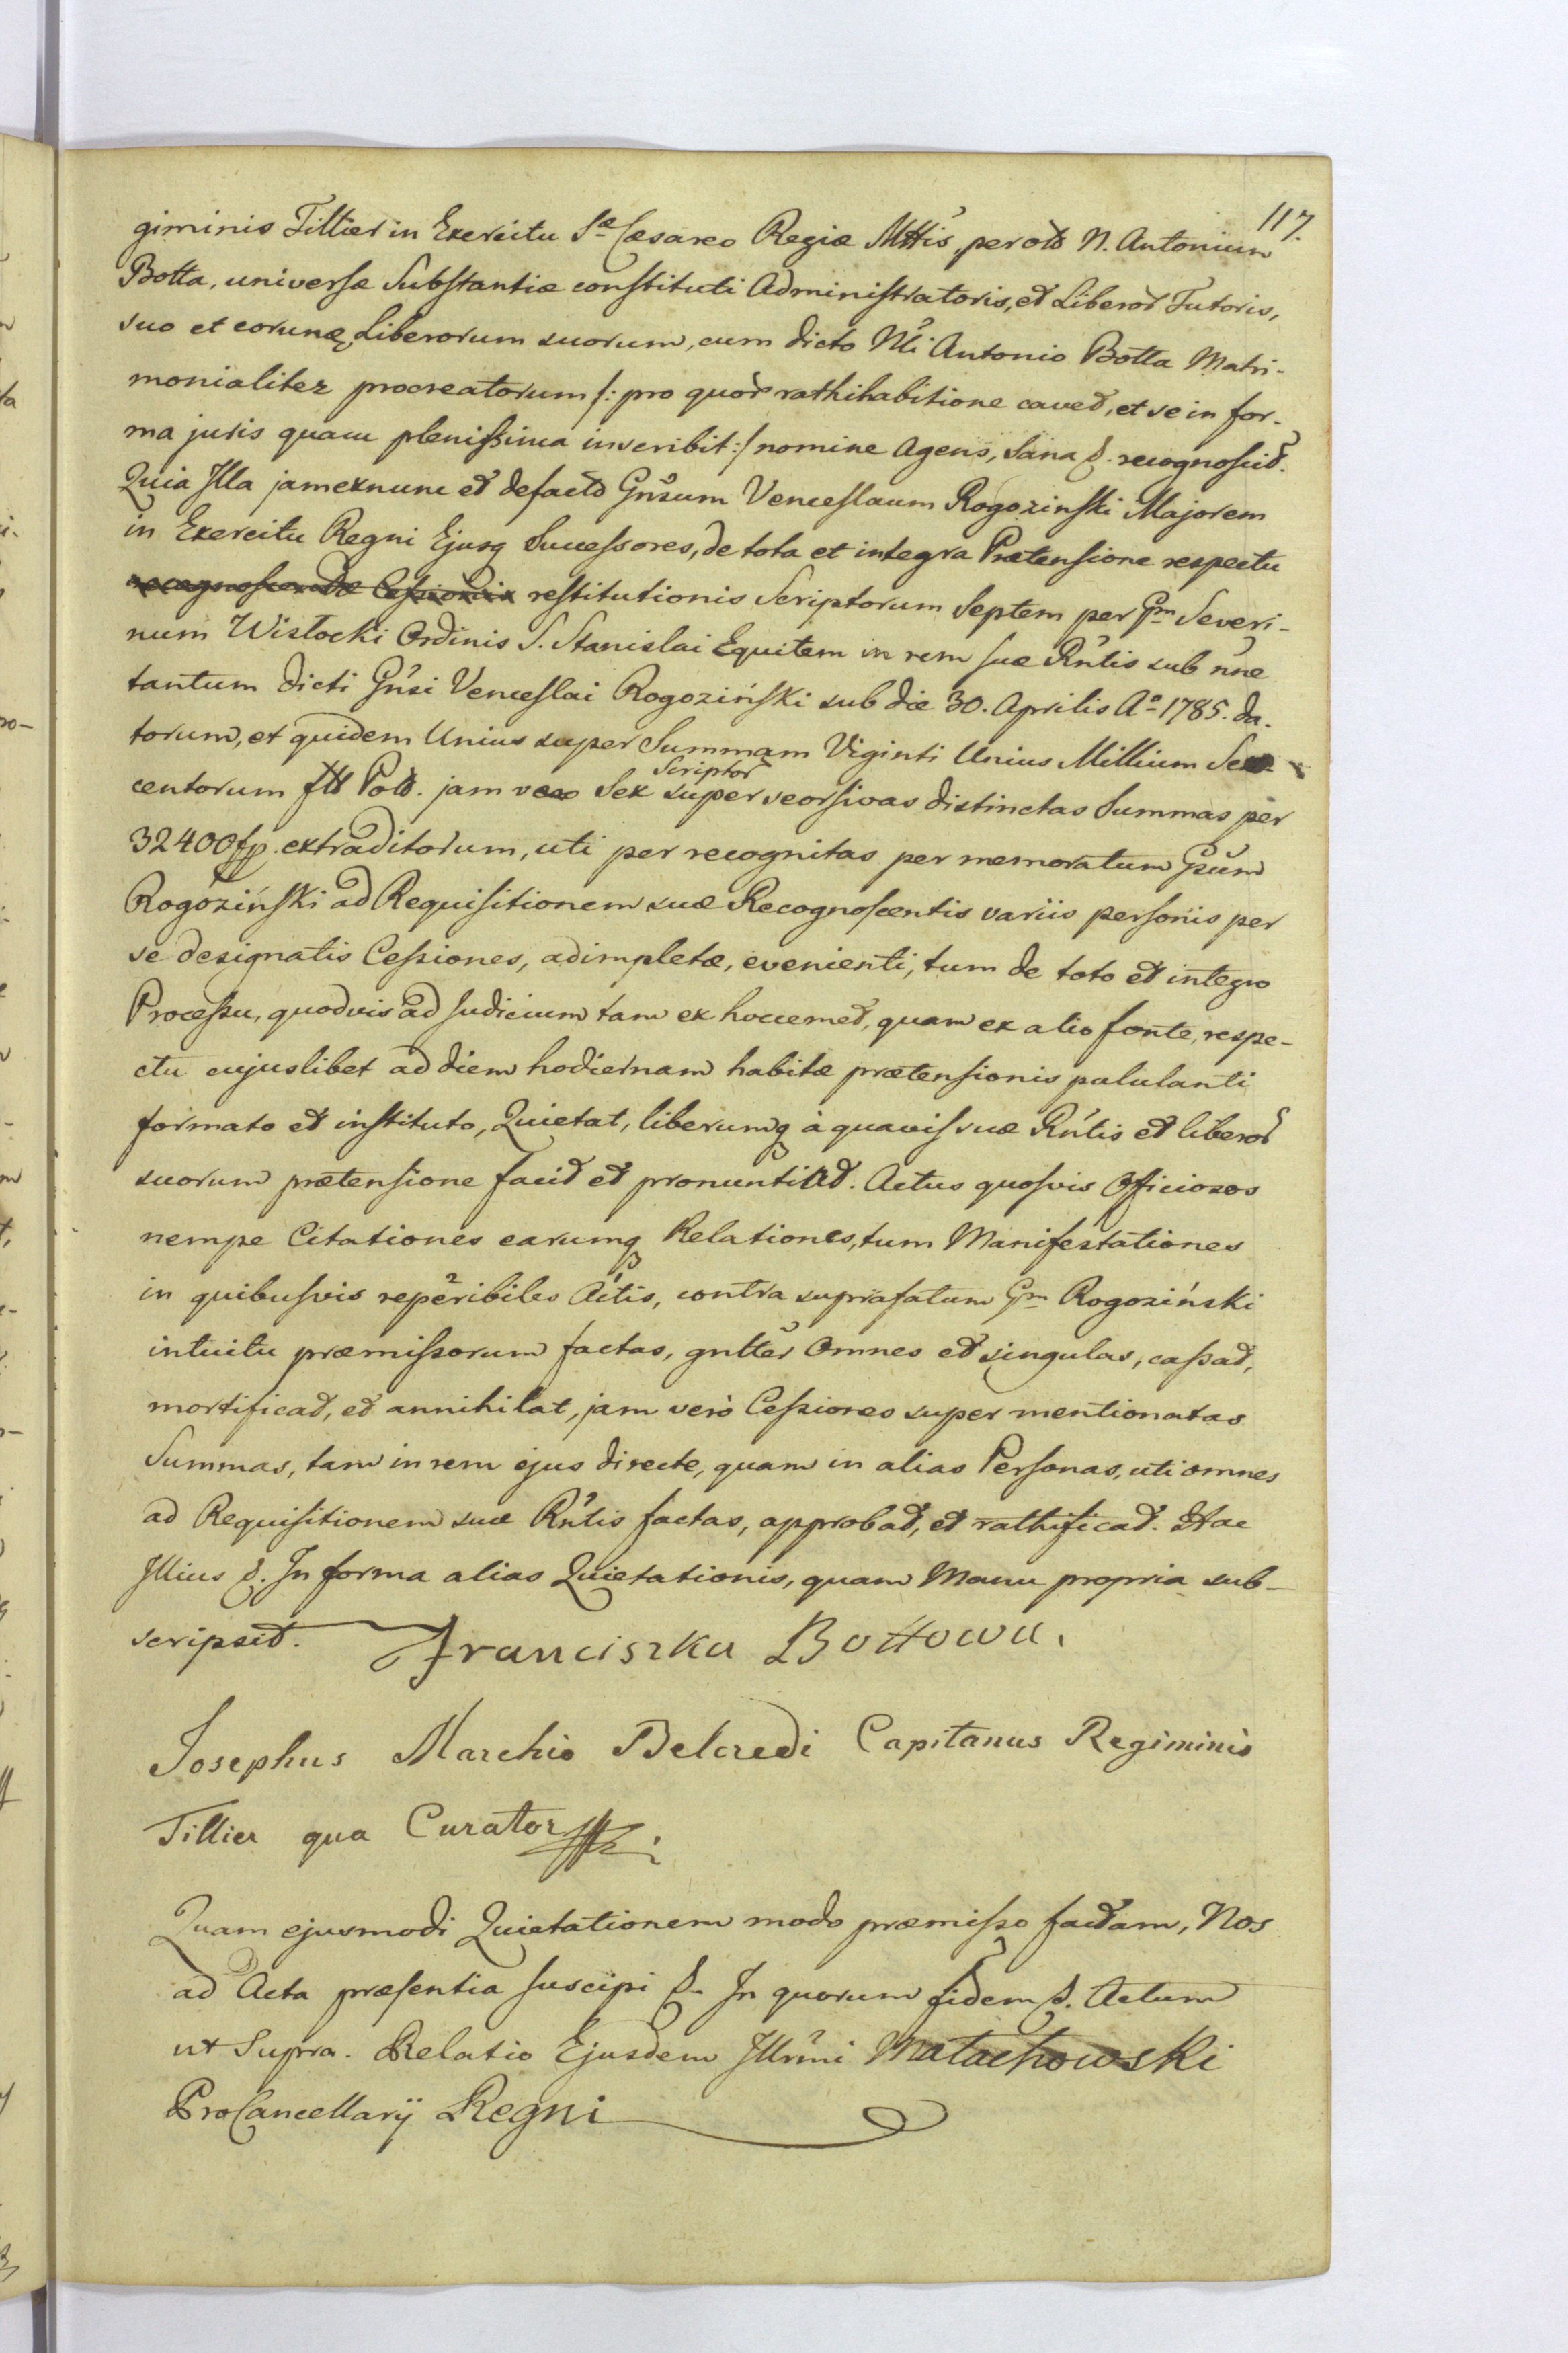 117.
giminis Tillier in Exercitu Sæ Cæsareo Regiæ Mttis, per otd N. Antonium
Botta, universæ Substantiæ constituti Administratoris, et Liberor Tutoris,
suo et eorunq Liberorum suorum, cum dicto Nli Antonio Botta Matri-
monialiter procreatorum /: pro quor rathihabitione cavet, et se in for-
ma juris quam plenissima inscribit :/ nomine Agens, Sana &. recognoscit.
Quia Illa jam exnunc et defacto Gnsum Venceslaum Rogozinski Majorem
in Exercitu Regni Ejusq Successores, de tota et integra Prætensione respectu
recognoscendæ Cessionis restitutionis Scriptorum Septem per Gm Severi-
num Wisłocki Ordinis S. Stanislai Equitem in rem suæ Rntis sub nne
tantum dicti Gnsi Venceslai Rogoziński sub die 30. Aprilis Ao 1785. da-
torum, et quidem Unius super Summam Viginti Unius Millium Sex-
centorum fll Pold. jam vero Sex Scriptor super seorsivas distinctas Summas per
32400 fp. extraditorum, uti per recognitas per memoratum Gsum
Rogoziński ad Requisitionem suæ Recognoscentis variis personis per
se designatis Cessiones, adimpletæ, evenienti, tum de toto et integro
Processu, quodvis ad Judicium tam ex hoccemet, quam ex alio fonte, respe-
ctu cujuslibet ad diem hodiernam habitæ prætensionis pululanti
formato et instituto, Quietat, liberumq à quavis suæ Rntis et liberor
suorum prætensione facit et pronuntiat. Actus quosvis Officiosos
nempe Citationes earumq Relationes, tum Manifestationes
in quibusvis reperibiles Actis, contra suprafatum Gm Rogoziński
intuitu præmissorum factas, gnlter Omnes et singulas, cassat,
mortificat, et annihilat, jam verò Cessiones super mentionatas
Summas, tam in rem ejus directe, quam in alias Personas, uti omnes
ad Requisitionem suæ Rntis factas, approbat, et rathificat. Hac
Illius &. In forma alias Quietationis, quam Manu propria sub-
scripsit. Franciszka Bottowa.
Josephus Marchio Belcredi Capitanus Regiminis
Tillier qua Curator
Quam ejusmodi Quietationem modo præmisso factam, Nos
ad Acta præsentia suscipi &. In quorum fidem &. Actum
ut Supra. Relatio Ejusdem Illrmi Małachowski
ProCancellarij Regni